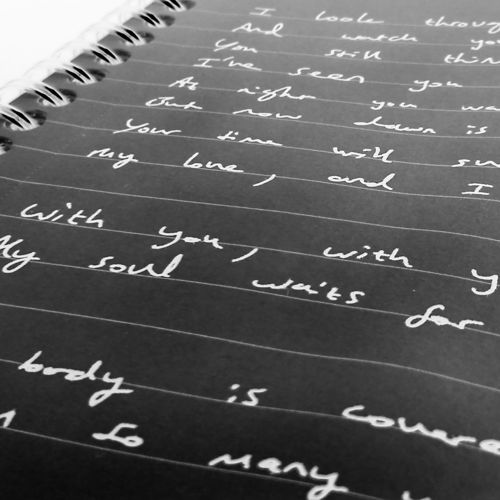 I look throug
And watch yo
You still thin
I've seen you
At night you we
But now dawn is
Your time will su
My love, and I
With you, with y
My soul waits for
body is covere
so many